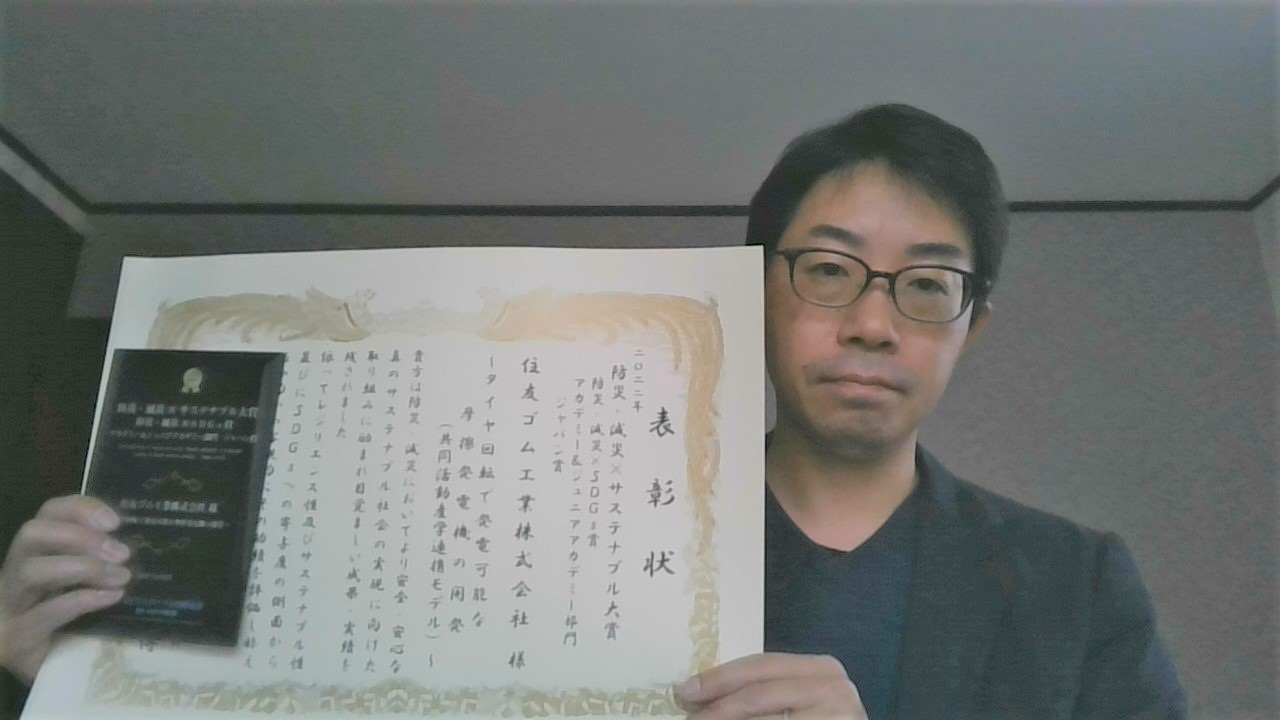 表彰状
二〇二二年
防災・減災×サステナブル大賞
防災・減災×SDGs賞
アカデミー&ジュニアアカデミー部門
ジャパン賞
住友ゴム工業株式会社 様
~タイヤ回転で発電可能な
摩擦発電機の開発
(共同活動産学連携モデル)~
貴方は防災・減災においてより安全・安心な
真のサステナブル社会の実現に向けた
取り組みに励まれ目覚ましい成果・実績を
残されました
依ってレジリエンス性及びサステナブル性
並びにSDGsへの寄与度の側面から
の功績を評価し称え
防災・減災×サステナブル大賞
防災・減災×SDGs賞
住友ゴム工業株式会社 様